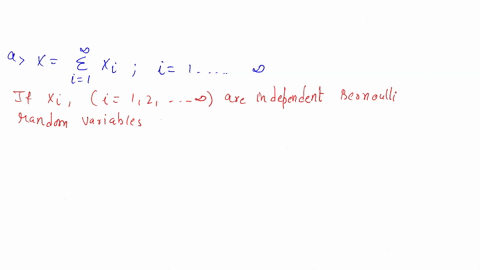 a> x = ∞ Σ i=1 xi ; i= 1 .... ∞
If xi, (i= 1, 2, ... ∞) are independent Bernoulli
random variables